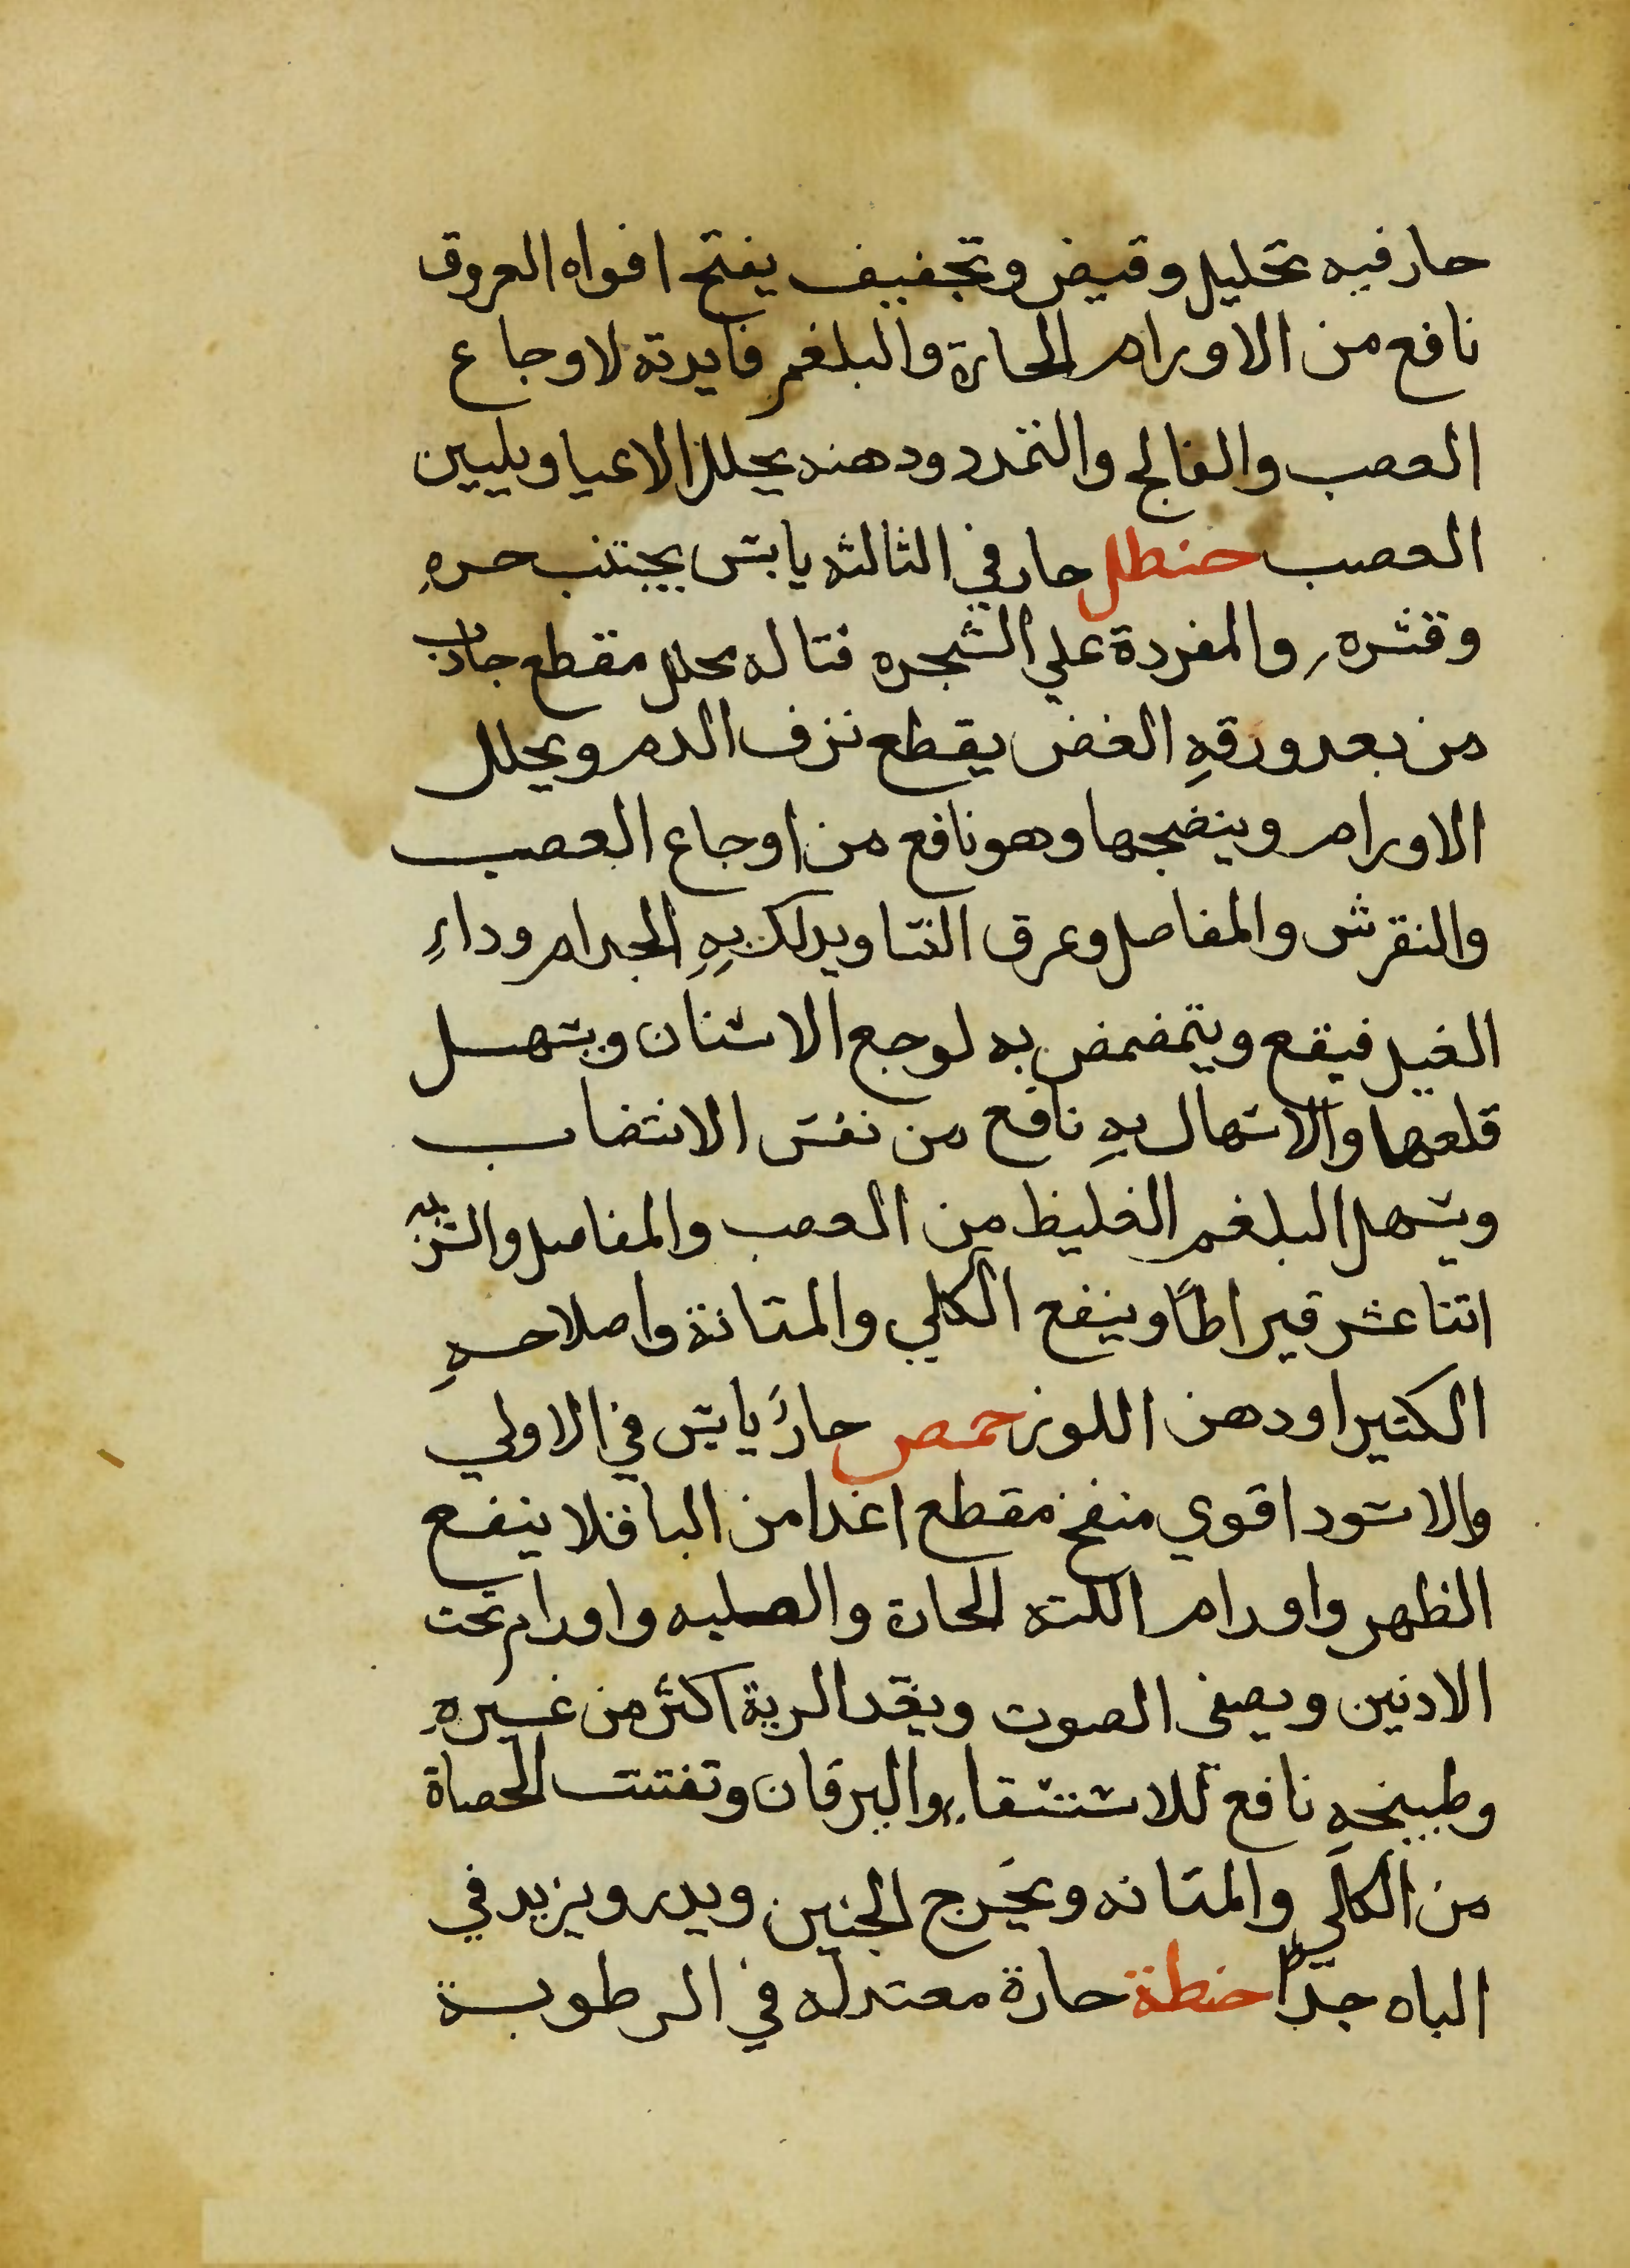 حار فيه تحليل وقبض وتجفيف يفتح افواه العروق
نافع من الاورام الحارة والبلغم فايدته لاوجاع
العصب والفالج والتمدد ودهنه يحلل الاعيا ويليين
العصب حنطل حار في الثالثه يابس يجتنب حره
وقشره والمفردة علي الشجره قتاله محلل مقطع جاذب
من بعد ورقهِ الغض يقطع نزف الدم ويحلل
الاورام وينضجها وهو نافع من اوجاع العصب
والنقرس والمفاصل وعرق النسا ويدلك بهِ الجدام وداءِ
الفيل فيقع ويتمضمض به لوجع الاسنان ويسهل
قلعها والاسهال بهِ نافع من نفس الانتضاب
ويسهل البلغم الغليظ من العصب والمفاصل والشربه
اتنا عشر قيراطًا وينفع الكلي والمتانة واصلاحهِ
الكتيرا ودهن اللوز حمص حارُ يابس في الاولي
والاسود اقوي منفخ مقطع اغدا من الباقلا ينفع
الظهر واورام اللته الحارة والصلبه واورام تحت
الادنين ويصفى الصوت ويغد الرية اكثر من غيره
وطبيخهِ نافع للاستسقاء واليرقان وتفتت الحصاة
من الكلي والمتانه ويخرج الجنين ويدر ويزيد في
الباه جدًا حنطة حارة معتدله في الرطوبة